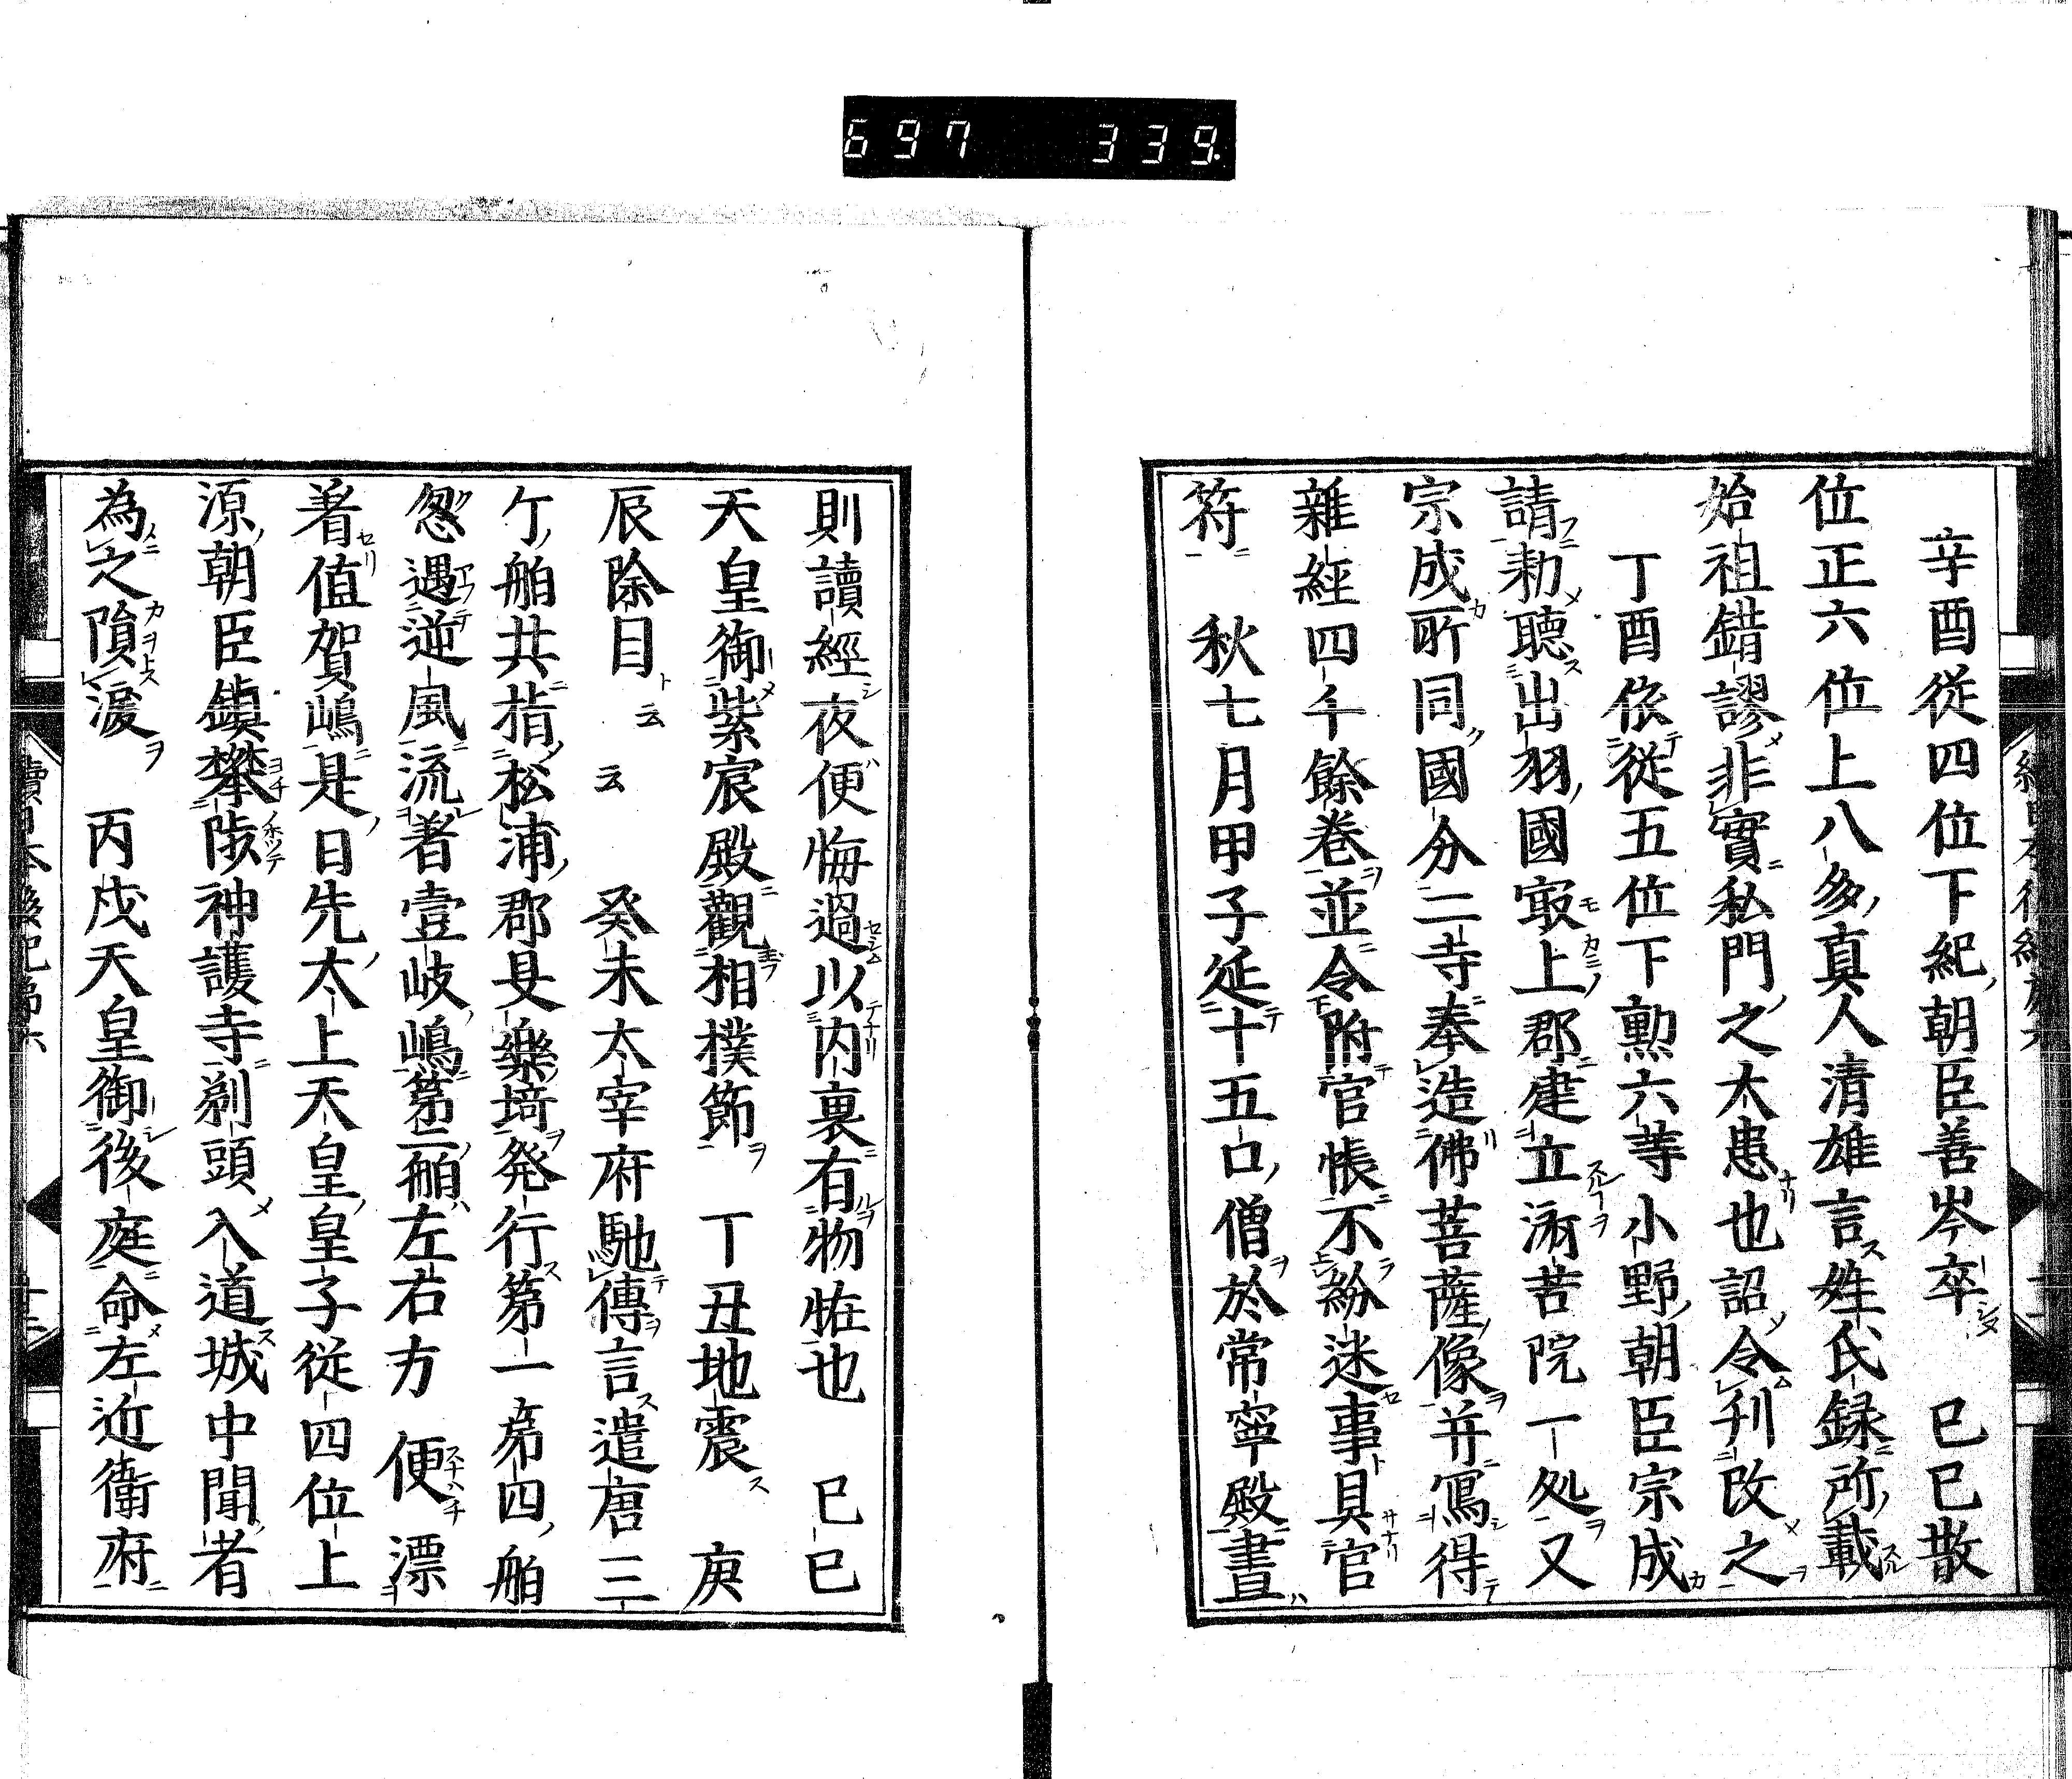 697 339.
辛酉従四位下紀朝臣善岑卒 己巳散
位正六位上八多真人清雄言姓氏録所載
始祖錯謬非實私門之大患也詔令刊改之
丁酉依従五位下勲六等小野朝臣宗成
請勅聴出羽國最上郡建立済苦院一処又
宗成所同國分二寺奉造佛菩薩像并寫得
雜經四千餘巻並令附官帳不紛迷事具官
符 秋七月甲子延十五口僧於常寧殿晝
則讀經夜便悔過以内裏有物恠也 己巳
天皇御紫宸殿觀相撲節 丁丑地震 庚
辰除目云云 癸未太宰府馳傳言遣唐三
ケ舶共指松浦郡旻樂埼発行第一第四舶
忽遇逆風流著壹岐嶋第二舶左右方便漂
著值賀嶋是日先太上天皇皇子従四位上
源朝臣鎮攀陟神護寺剃頭入道城中聞者
為之隕涙 丙戌天皇御後庭命左近衛府